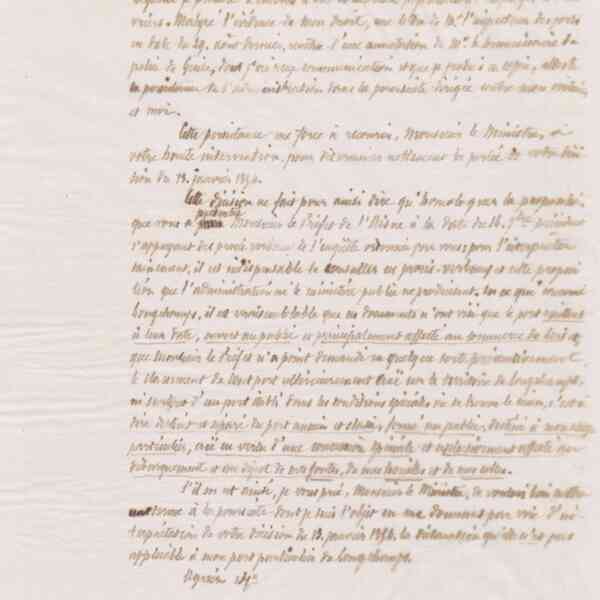 Malgré l'évidence de mon droit, une lettre de Mr l'inspecteur des ports
en date du 29 août dernier, revêtue d'une annotation de Mr le Commissaire de
police de Guise, dont j'ai reçu communication et que je produis à ce copie, atteste
la persistance de l'administration dans la poursuite dirigée contre mon
et moi.
Cette persistance me force à recourir, Monsieur le Ministre, à
votre haute intervention pour déterminer nettement la portée de votre déci
sion du 13 janvier 1854.
Cette décision ne fait pour ainsi dire qu'homologuer la proposition
que vous a présentée Monsieur le Préfet de l'Aisne à la date du 16
s'appuyant des procès verbaux de l'enquête ordonnée par vous pour l'interprétation
sainement, il est indispensable de consulter ces procès-verbaux et cette proposi
tion que l'administration ni le ministère public ne produisent. En ce qui concerne
Longchamps, il est vraisemblable que ces documents n'ont visé que le port existant
à leur date, ouvert au public et principalement affecté au commerce de bois et
que Monsieur le Préfet n'a point demandé en quelque sorte préventivement
le classement de tout port ultérieurement créé sur le territoire de Longchamps,
ni surtout d'un port établi dans les conditions spéciales où se trouve le mien, c'est à
dire distinct et séparé du port ancien et fermé au public, destiné à mon usage
particulier, créé en vertu d'une concession spéciale et exclusivement affecté au
débarquement et au dépôt de mes fontes, de mes houilles et de mes cokes.
S'il en est ainsi, je vous prie, Monsieur le Ministre, de vouloir bien mettre
un terme à la poursuite dont je suis l'objet en me donnant par voie d'in
terprétation de votre décision du 13 janvier 1854, la déclaration qu'elle n'est pas
applicable à mon port particulier de Longchamps.